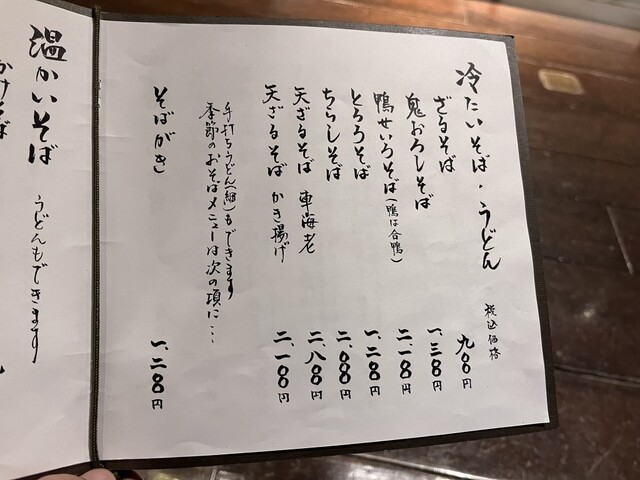 冷たいそば・うどん 税込価格
ざるそば 九〇〇円
鬼おろしそば 一、三〇〇円
鴨せいろそば(鴨は合鴨) 二、一〇〇円
とろろそば 一、二〇〇円
ちらしそば 二、〇〇〇円
天ざるそば 車海老 二、八〇〇円
天ざるそば かき揚げ 二、一〇〇円
手打ちうどん(細)もできます
季節のおそばメニューは次の項に…
そばがき 一、二〇〇円
温かいそば うどんもできます
かけそば